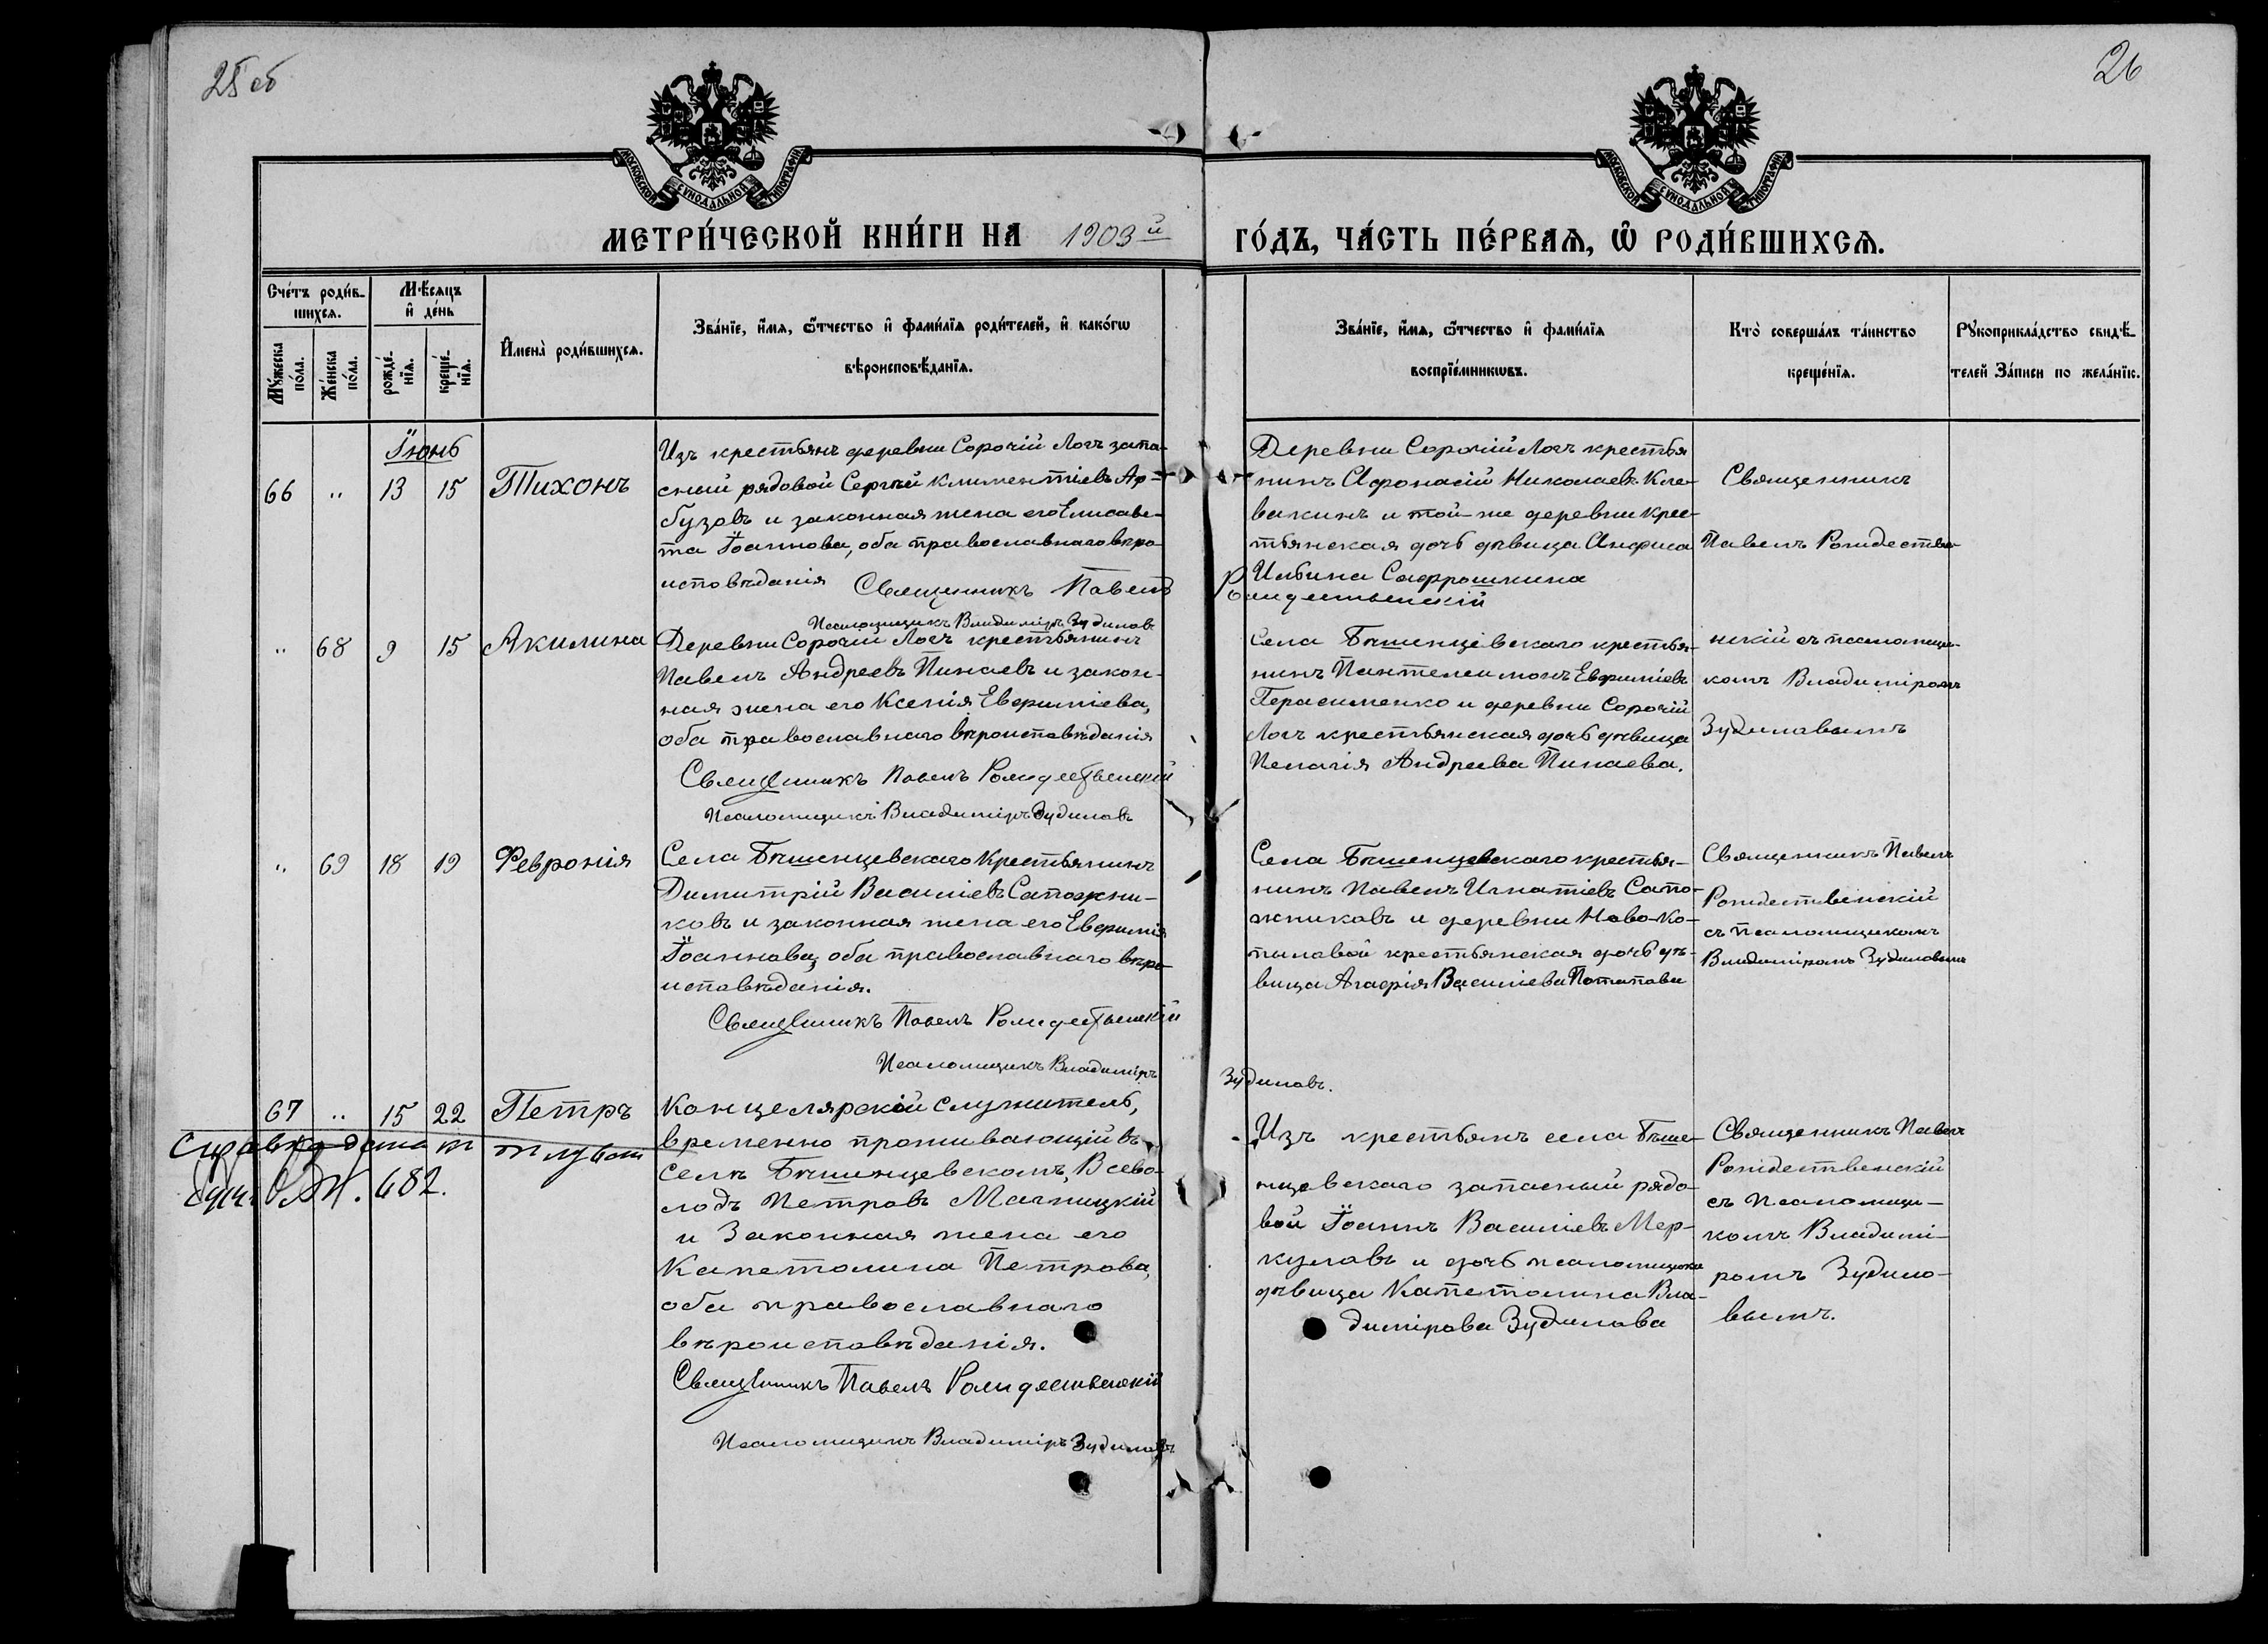 25 об
26
МОСКОВСКОЙ СѴНОДАЛЬНОЙ ТИПОГРАФІИ.
МОСКОВСКОЙ СѴНОДАЛЬНОЙ ТИПОГРАФІИ.
МЕТРИ́ЧЕСКОЙ КНИ́ГИ НА 1903й ГО́ДЪ, ЧА́СТЬ ПЕ́РВАѦ, Ѡ҆ РОДИ́ВШИХСѦ.
Сче́тъ роди́в-
шихсѧ.
Му́жеска по́ла.
Же́нска по́ла.
Мѣ́сѧцъ
и҆ де́нь
рожде́-
нїѧ.
креще́-
нїѧ.
И҆мена̀ роди́вшихсѧ.
Зва́нїе, и҆́мѧ, ѻ҆́тчество и҆ фами́лїѧ роди́телей, и҆ како́гѡ
вѣроисповѣ́данїѧ.
Зва́нїе, и҆́мѧ, ѻ҆́тчество и҆ фами́лїѧ
воспрїе́мникѡвъ.
Кто̀ соверша́лъ та́инство
креще́нїѧ.
Рꙋкоприкла́дство свидѣ́-
телей За́писи по жела́нїю.
Іюнь
66 " 13 15 Тихонъ
Изъ крестьянъ деревни Сорочій Логъ запа-
сный рядовой Сергѣй Климентіевъ Ар-
бузовъ и законная жена его Елисаве-
та Іоаннова, оба православнаго вѣро-
исповѣданія
Священникъ Павелъ Рождественскій
Псаломщикъ Владиміръ Зудиловъ
Деревни Сорочій Логъ крестья
нинъ Афонасій Николаевъ Кле-
вакинъ и той-же деревни крес-
тьянская дочь дѣвица Анфиса
Ильина Сафрошкина
Священникъ
Павелъ Рождестве-
" 68 9 15 Акилина
Деревни Сорочій Логъ крестьянинъ
Павелъ Андреевъ Пинаевъ и закон-
ная жена его Ксенія Евфиміева,
оба православнаго вѣроисповѣданія
Священникъ Павелъ Рождественскій
Псаломщикъ Владиміръ Зудиловъ
Села Бѣшенцевскаго крестья-
нинъ Пантелеимонъ Евфиміевъ
Герасименко и деревни Сорочій
Логъ крестьянская дочь дѣвица
Пелагія Андреева Пинаева.
нскій съ псаломщи-
комъ Владиміромъ
Зудиловымъ
" 69 18 19 Февронія
Села Бѣшенцевскаго Крестьянинъ
Димитрій Василіевъ Сапожни-
ковъ и законная жена его Евфимія
Іоаннова, оба православнаго вѣро-
исповѣданія.
Священникъ Павелъ Рождественскій
Псаломщикъ Владиміръ Зудиловъ.
Села Бѣшенцевскаго крестья-
нинъ Павелъ Игнатіевъ Сапо-
жниковъ и деревни Ново-Ко-
пыловой крестьянская дочь дѣ-
вица Агафія Василіева Потапова
Священникъ Павелъ
Рождественскій
съ псаломщикомъ
Владиміромъ Зудиловымъ
67 " 15 22 Петръ
Справка дана
682.
Концелярскій служитель,
временно проживающій въ
селѣ Бѣшенцевскомъ, Всево-
лодъ Петровъ Магницкій
и Законная жена его
Капетолина Петрова,
оба православнаго
вѣроисповѣданія.
Священникъ Павелъ Рождественскій
Псаломщикъ Владиміръ Зудиловъ
Изъ крестьянъ села Бѣше-
нцевскаго запасный рядо-
вой Іоаннъ Василіевъ Мер-
куловъ и дочь псаломщика
дѣвица Капетолина Вла-
димірова Зудилова
Священникъ Павелъ
Рождественскій
съ Псаломщи-
комъ Владимі-
ромъ Зудило-
вымъ.